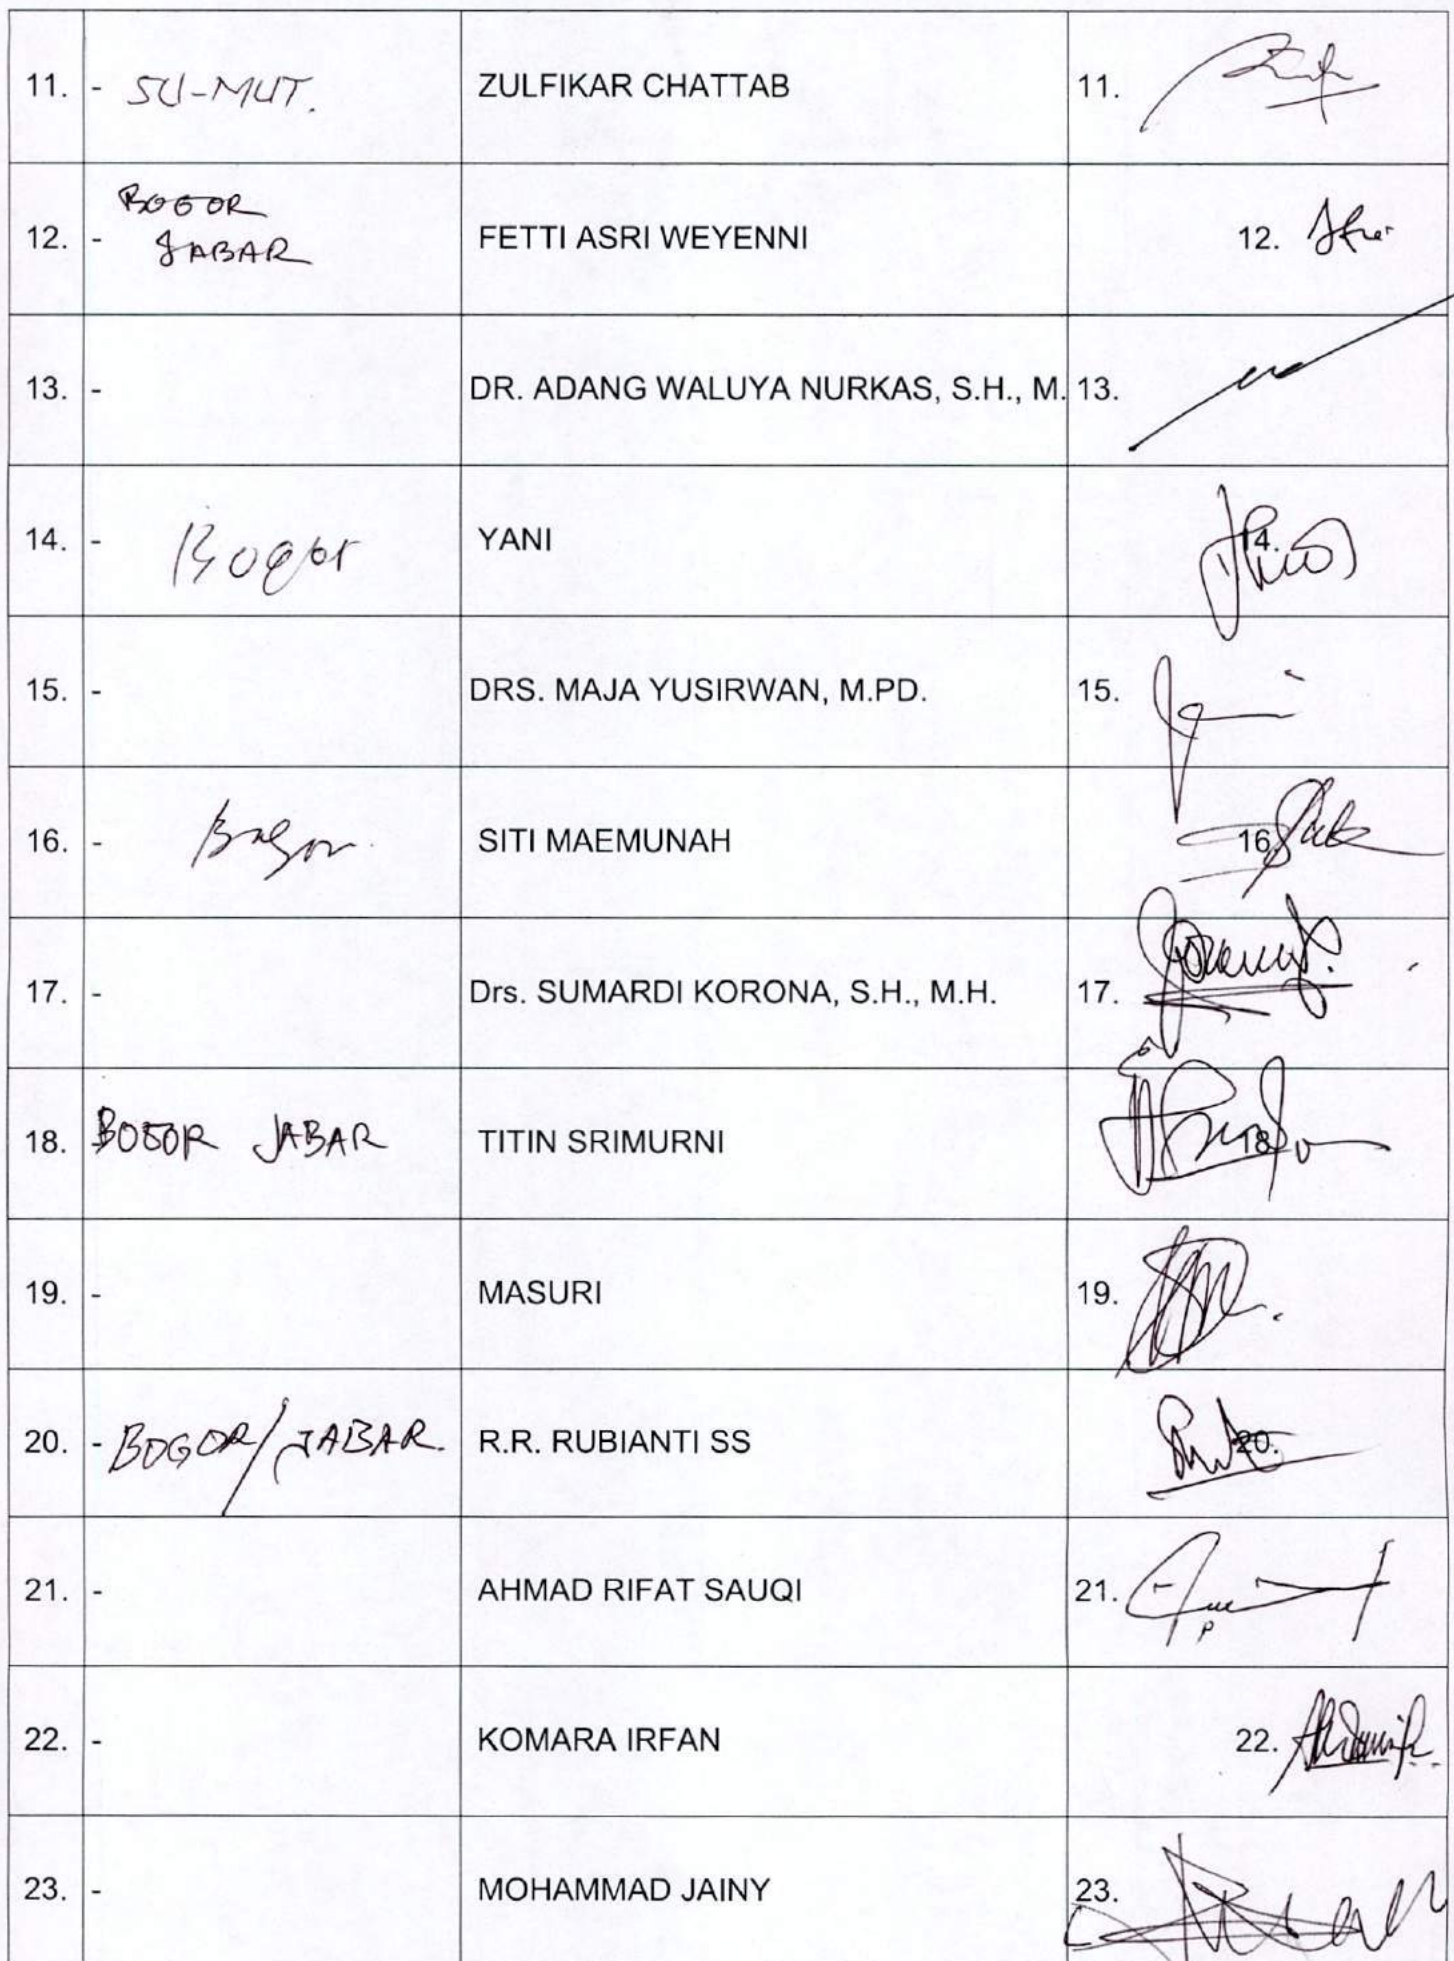 11. - SU-MUT. ZULFIKAR CHATTAB 11.
BOGOR
12. - JABAR FETTI ASRI WEYENNI 12.
13. - DR. ADANG WALUYA NURKAS, S.H., M. 13.
14. - Bogor YANI 14.
15. - DRS. MAJA YUSIRWAN, M.PD. 15.
16. - Bogor SITI MAEMUNAH 16.
17. - Drs. SUMARDI KORONA, S.H., M.H. 17.
18. BOGOR JABAR TITIN SRIMURNI 18.
19. - MASURI 19.
20. - BOGOR/JABAR. R.R. RUBIANTI SS 20.
21. - AHMAD RIFAT SAUQI 21.
22. - KOMARA IRFAN 22.
23. - MOHAMMAD JAINY 23.